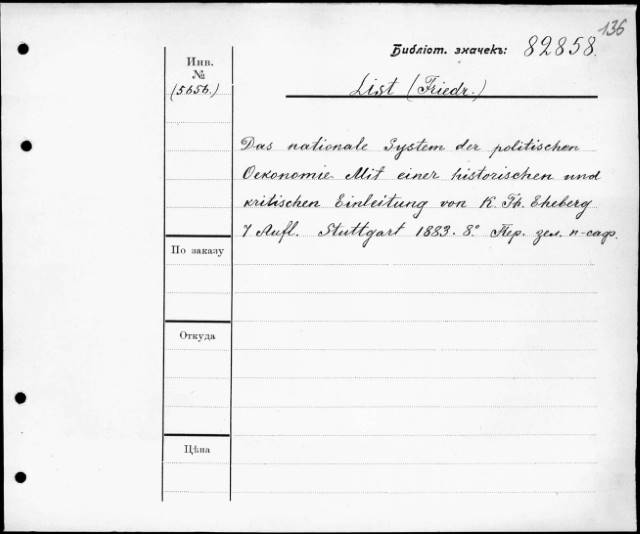 136
Библіот. значекъ: 82858.
Инв.
№
(5656.)
List (Friedr.)
Das nationale System der politischen
Oekonomie Mit einer historischen und
kritischen Einleitung von K. Th. Eheberg
7 Aufl. Stuttgart 1883. 8° Пер. зел. п-саф.
По заказу
Откуда
Цѣна